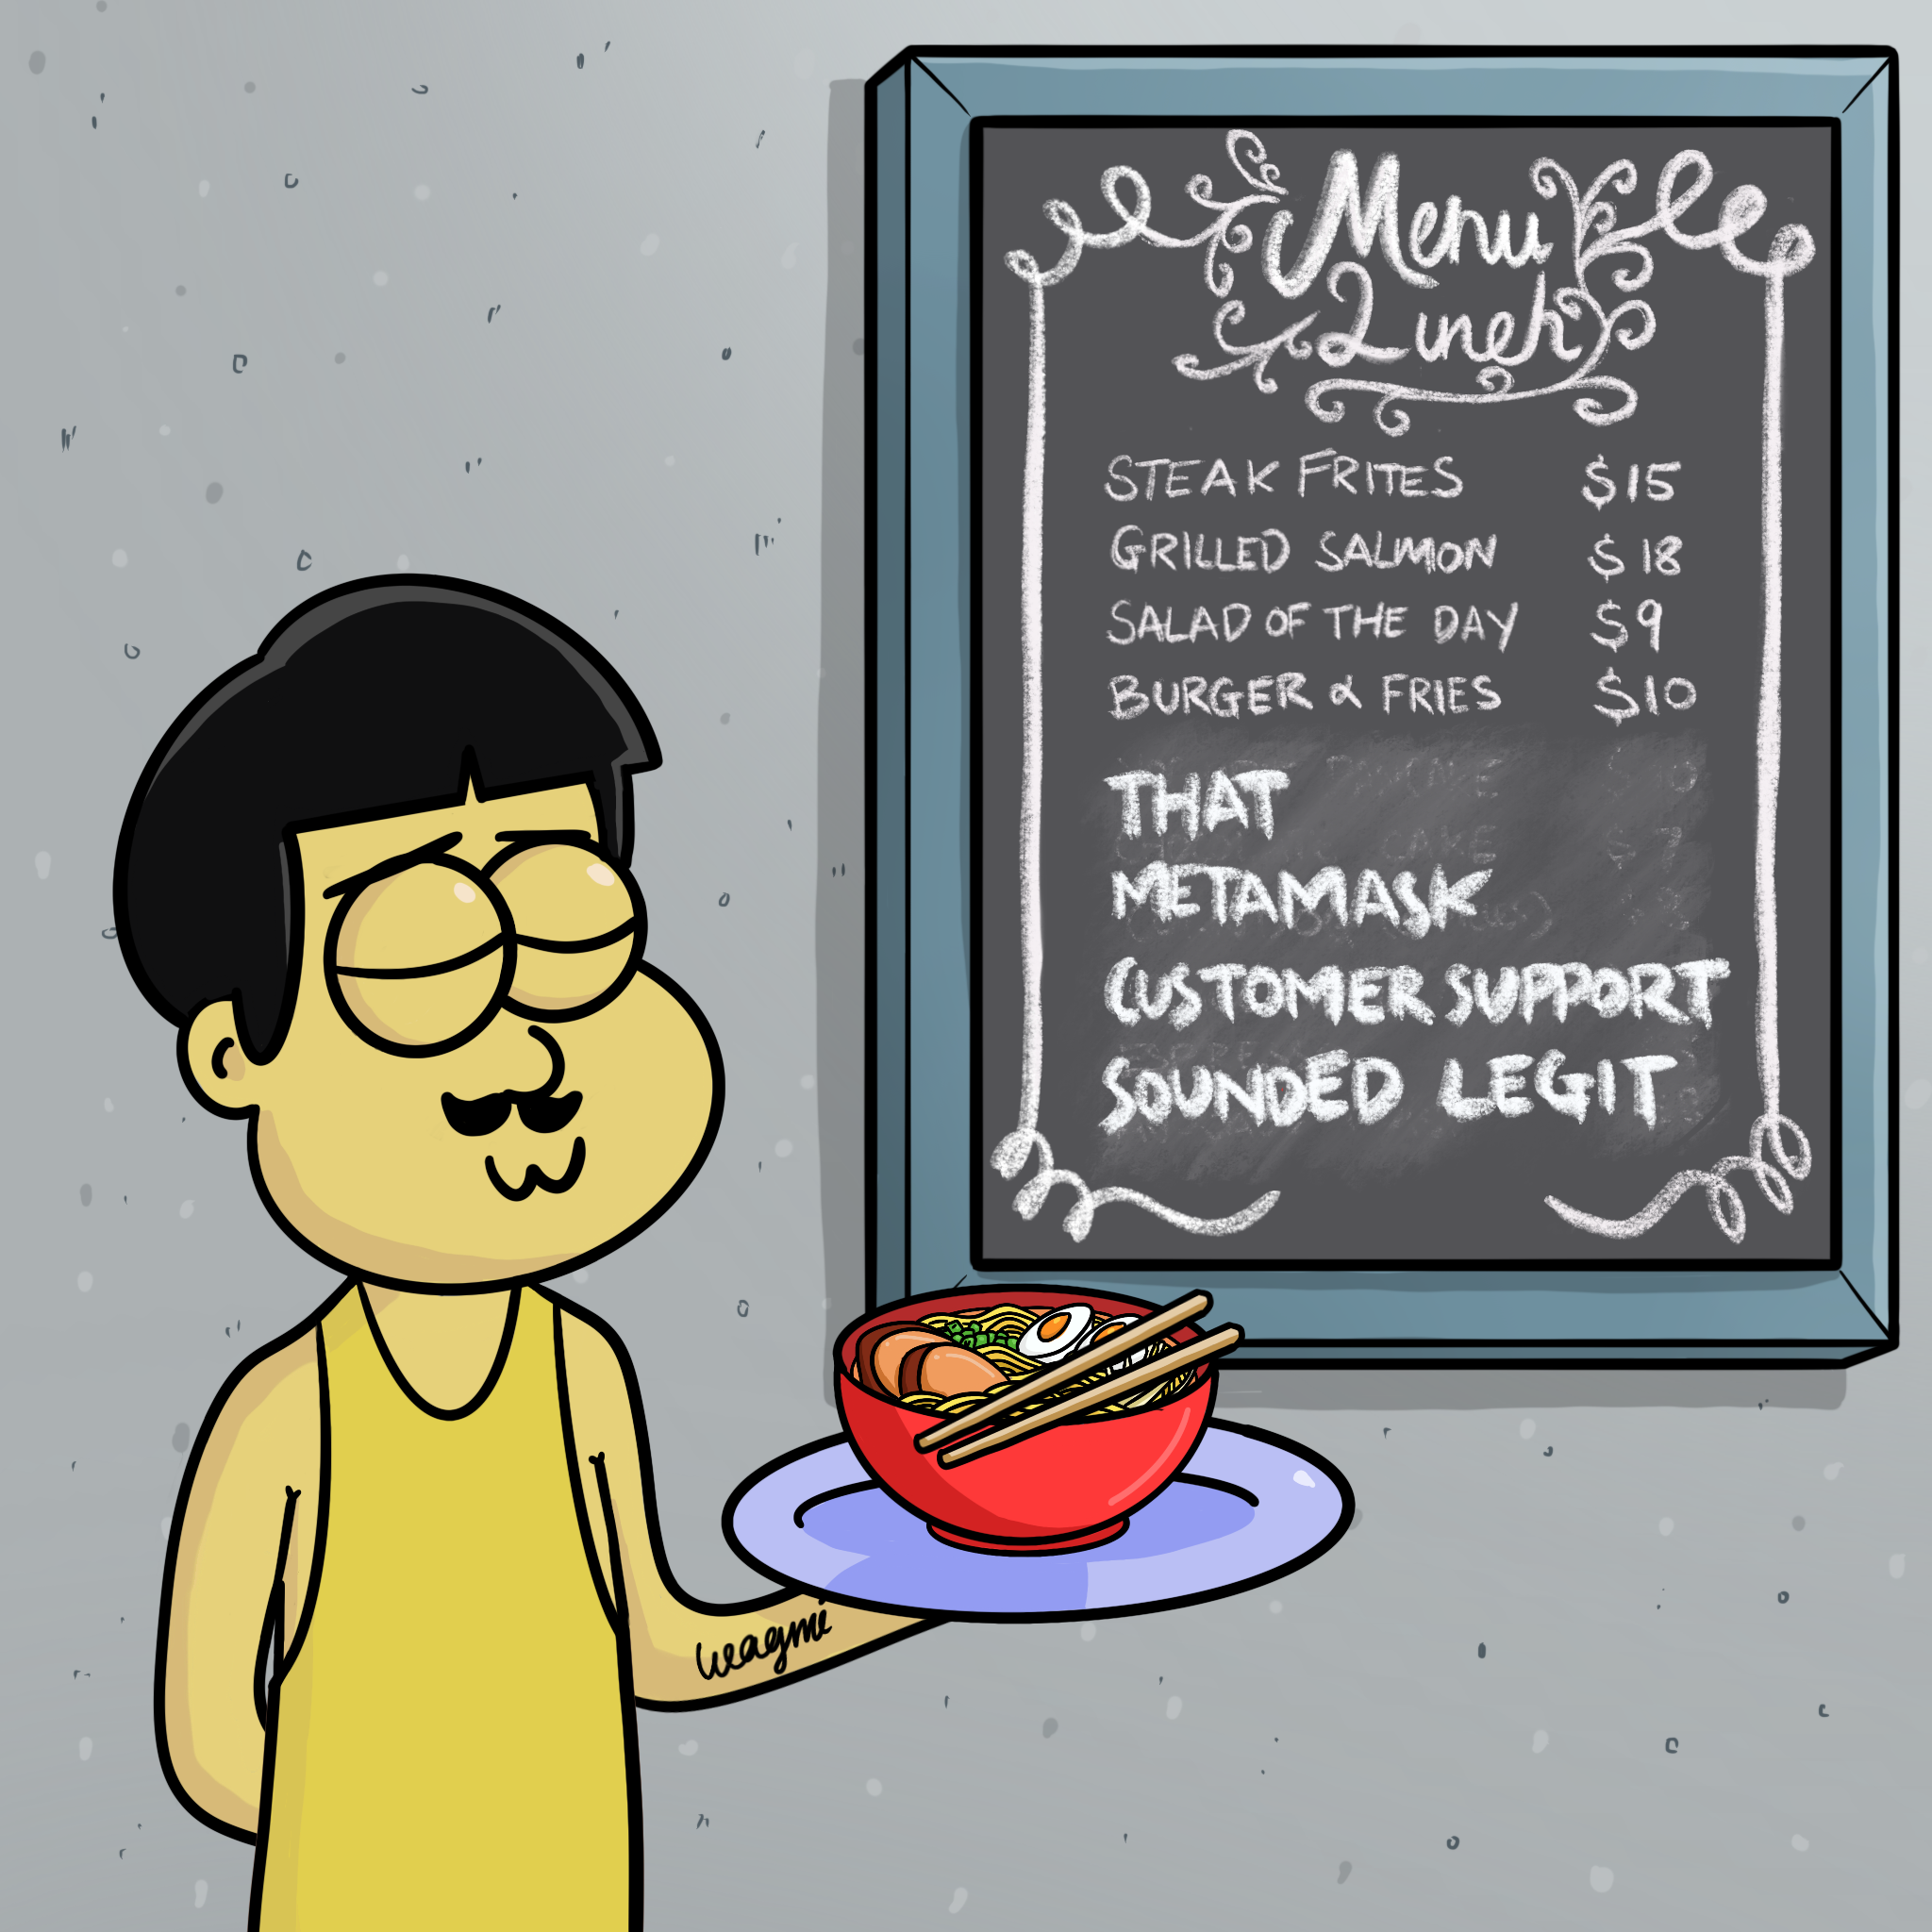 Menu
Lunch
STEAK FRITES $15
GRILLED SALMON $18
SALAD OF THE DAY $9
BURGER & FRIES $10
THAT
METAMASK
CUSTOMER SUPPORT
SOUNDED LEGIT
wagmi